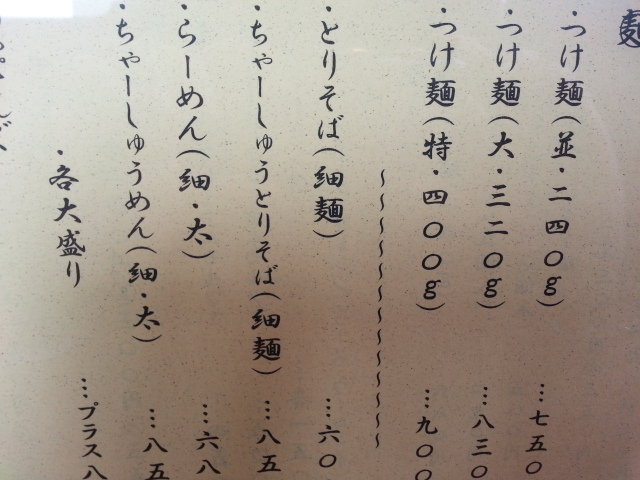 麺
・つけ麺(並・二四〇g) …七五〇
・つけ麺(大・三二〇g) …八三〇
・つけ麺(特・四〇〇g) …九〇〇
～～～～～～～～～～～～
・とりそば(細麺) …六〇
・ちゃーしゅうとりそば(細麺) …八五
・らーめん(細・太) …六八
・ちゃーしゅうめん(細・太) …八五
・各大盛り …プラス八